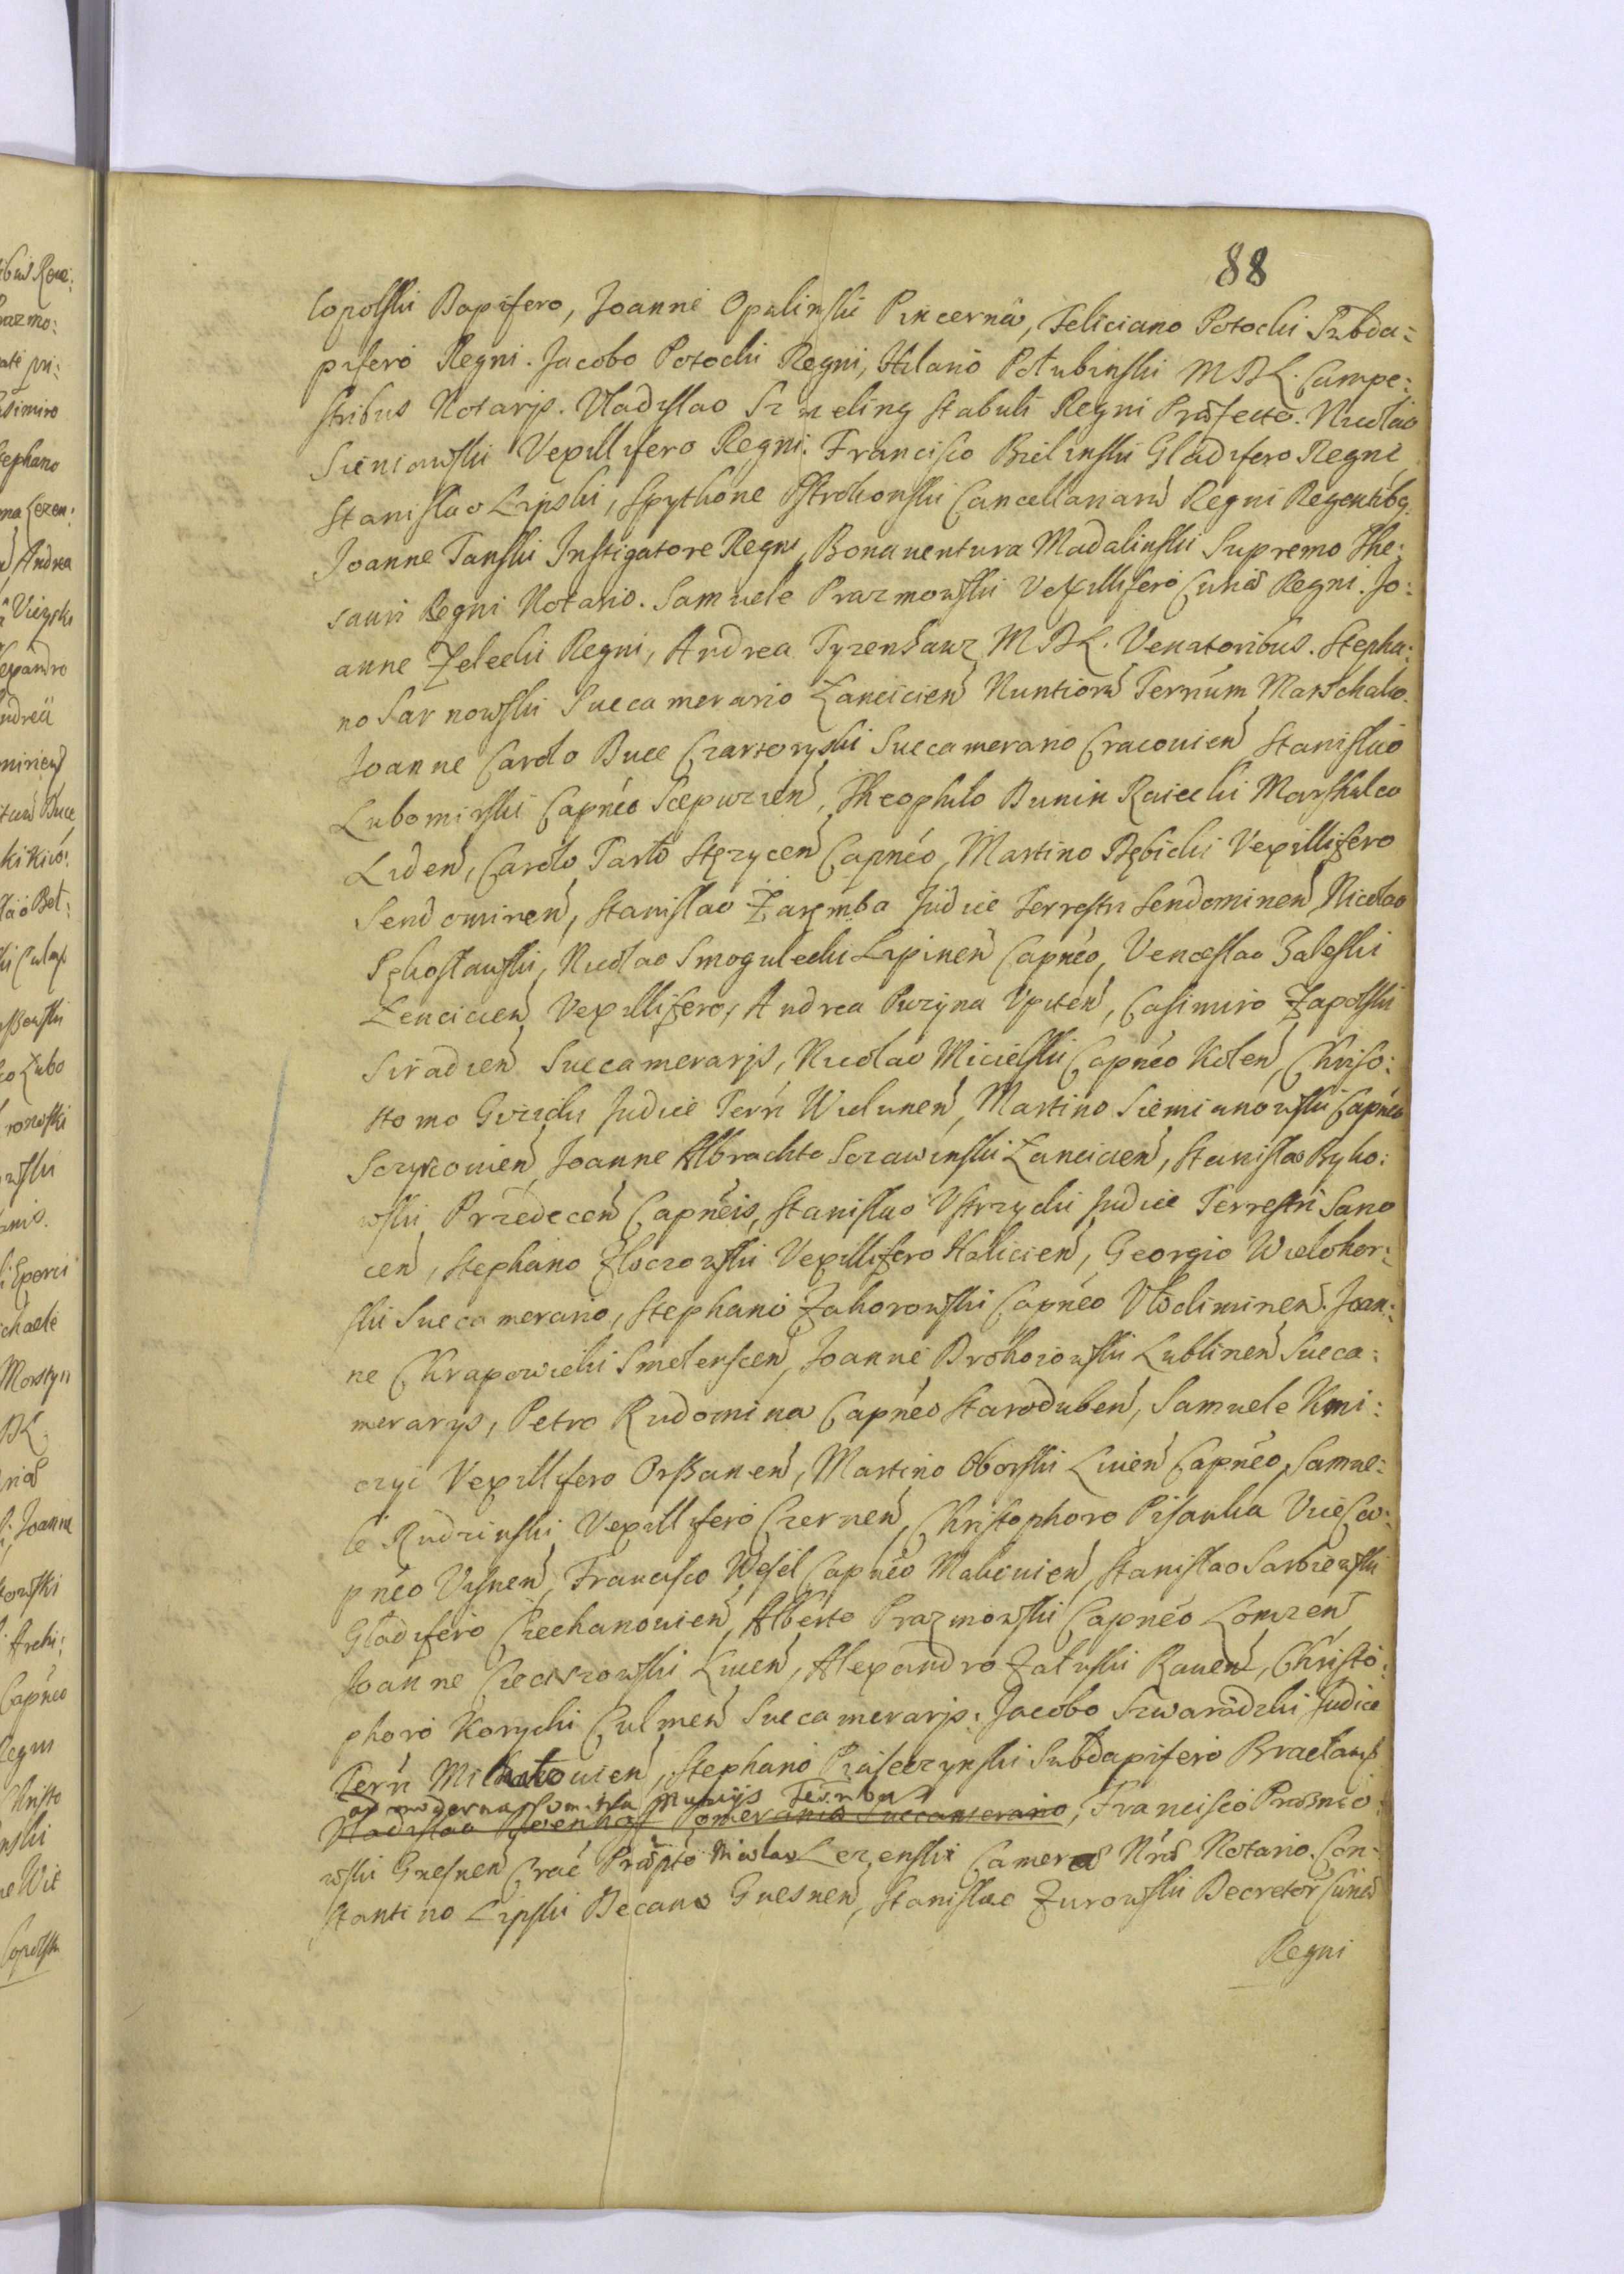 88
lopolski Dapifero, Joanne Opalinski Pincerna, Feliciano Potocki Subda:
pifero Regni. Jacobo Potocki Regni, Hilario Połubinski MDL. Campe:
stribus Notarijs. Vladislao Szmeling stabuli Regni Præfecto. Nicolao
Sieniawski Vexillifero Regni. Francisco Bielinski Gladifero Regni,
Stanislao Lipski, Spythone Pstrokonski Cancellariarũ Regni Regentibq.
Joanne Tanski Instigatore Regni, Bonaventura Madalinski Supremo The:
sauri Regni Notario. Samuele Prazmowski Vexillifero Curiæ Regni. Jo:
anne Żelecki Regni, Andrea Tyzenhauz MDL. Venatoribus. Stepha:
no Sarnowski Succamerario Lancicieñ Nuntiorũ Terrũm Marschalco.
Joanne Carolo Duce Czartoryski Succamerario Cracovieñ Stanislao
Lubomirski Capnéo Scepuzieñ, Theophilo Dunin Raiecki Marshalco
Lideñ, Carolo Tarło Stęzyceñ Capnéo, Martino Dębicki Vexillifero
Sendomireñ, Stanislao Zaręmba Judice Terrestri Sendomireñ, Nicolao
Skoraszewski, Nicolao Smogulecki Lipineñ Capnéo, Venceslao Zaleski
Lencicieñ Vexillifero, Andrea Puzyna Upiteñ, Casimiro Zapolski
Siradieñ Succamerarijs, Nicolao Micielski Capnéo Koleñ, Chriso:
stomo Gvizdi Judice Terri Wieluneñ, Martino Siemianowski Capnéo
Szrzkovieñ, Joanne Albrachto Szrawinski Lancicieñ, Stanislao Byko:
wski Przedeceñ Capnéis, Stanislao Ustrzycki Judice Terrestri Sano
ceñ, Stephano Złoczowski Vexillifero Halicieñ, Georgio Wielohor:
ski Succamerario, Stephano Zahorowski Capnéo Vlodimireñ. Joan:
ne Chrapowicki Smolensceñ, Joanne Drohoiowski Lublineñ Succa:
merarys, Petro Rudomina Capnéo Starodubeñ, Samuele Kmi:
cyc Vexillifero Orszaneñ, Martino Oborski Livieñ Capnéo, Samue:
le Rudzinski Vexillifero Czerneñ, Christophoro Pisanka Vice Ca:
pnéo Visneñ, Francisco Wesel Capnéo Makovieñ, Stanislao Sarbiewski
Gladifero Ciechanovieñ, Alberto Prazmowski Capnéo Lomzeñ,
Joanne Cieciszowski Liveñ, Alexandro Zaluski Raveñ, Christo:
phoro Korycki Culmeñ Succamerarijs. Jacobo Szwarodzki Judice
Terri Michałovieñ, Stephano Piaseczynski Subdapifero Bracław
ad moderna Com... Nuncijs Terrībus
Vladislao Denhoff Pomeraniæ Succamerario, Francisco Prazmo
wski Gnesneñ Crac Præpto Nicolao Lezenski Cameræ Nræ Notario. Con:
stantino Lipski Decano Gnesneñ, Stanislao Zurowski Decretor Curiæ
Regni